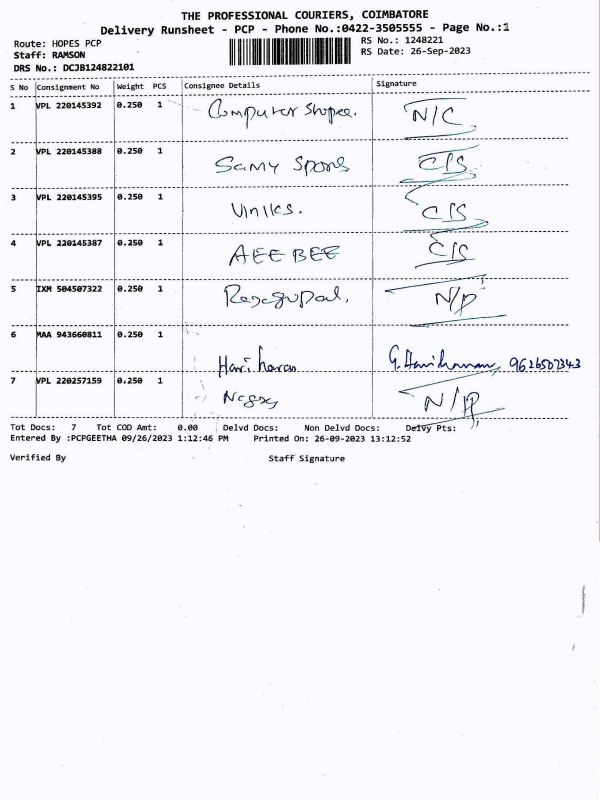 THE PROFESSIONAL COURIERS, COIMBATORE
Delivery Runsheet - PCP - Phone No.:0422-3505555 - Page No.:1
Route: HOPES PCP RS No.: 1248221
Staff: RAMSON RS Date: 26-Sep-2023
DRS No.: DCJB124822101
S No Consignment No Weight PCS Consignee Details Signature
1 VPL 220145392 0.250 1 Computer Shopee. N/C
2 VPL 220145388 0.250 1 Samy Spons C/S
3 VPL 220145395 0.250 1 Viniks. C/S
4 VPL 220145387 0.250 1 AEE BEE C/S
5 IXM 504507322 0.250 1 N/P
6 MAA 943660811 0.250 1 Hari haran G. Hariharan, 9626507343
7 VPL 220257159 0.250 1 N/P
Tot Docs: 7 Tot COD Amt: 0.00 Delvd Docs: Non Delvd Docs: Delvy Pts:
Entered By :PCPGEETHA 09/26/2023 1:12:46 PM Printed On: 26-09-2023 13:12:52
Verified By Staff Signature